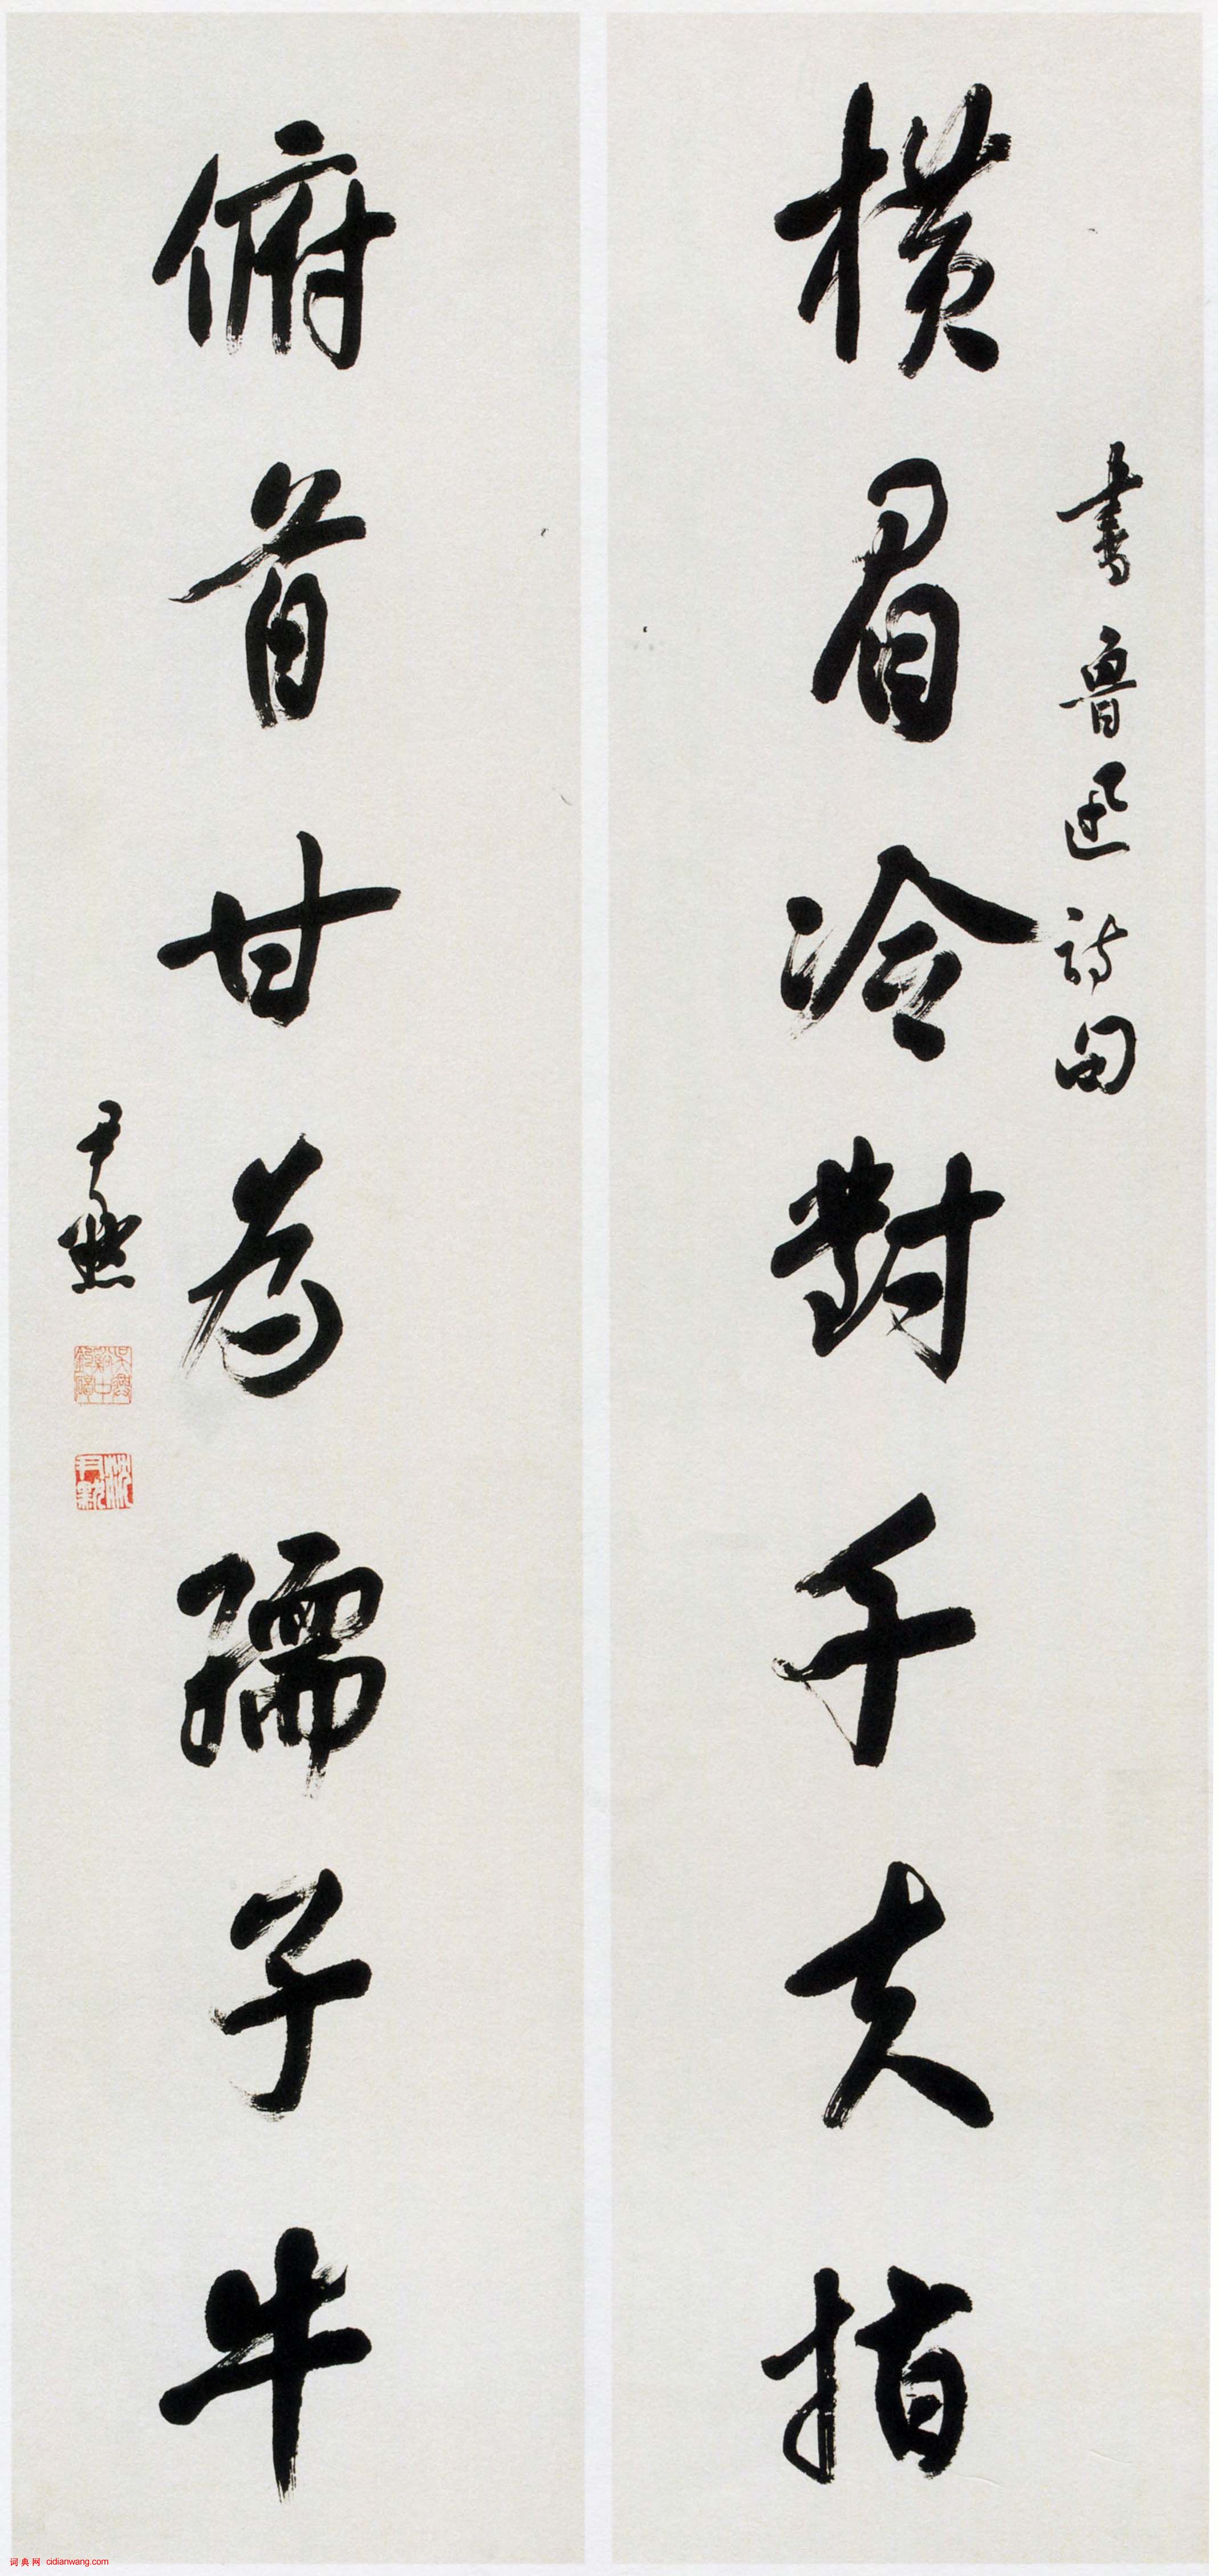 書魯迅詩句
橫眉冷對千夫指
俯首甘為孺子牛
尹默
沈尹默
词典网 cidianwang.com